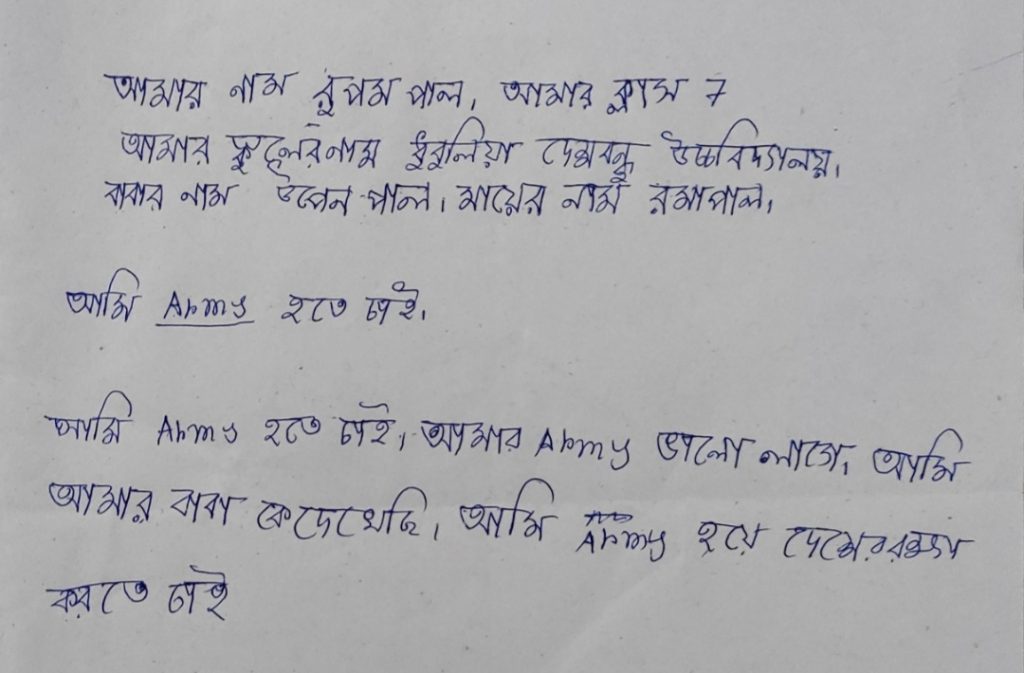 আমার নাম রুপম পাল, আমার ক্লাস 7
আমার স্কুলের নাম ধুবুলিয়া দেশবন্ধু উচ্চবিদ্যালয়,
বাবার নাম উপেন পাল, মায়ের নাম রমা পাল,
আমি Army হতে চাই,
আমি Army হতে চাই, আমার Army ভালো লাগে, আমি
আমার বাবা কে দেখেছি, আমি Army হয়ে দেশের রক্ষা
করতে চাই